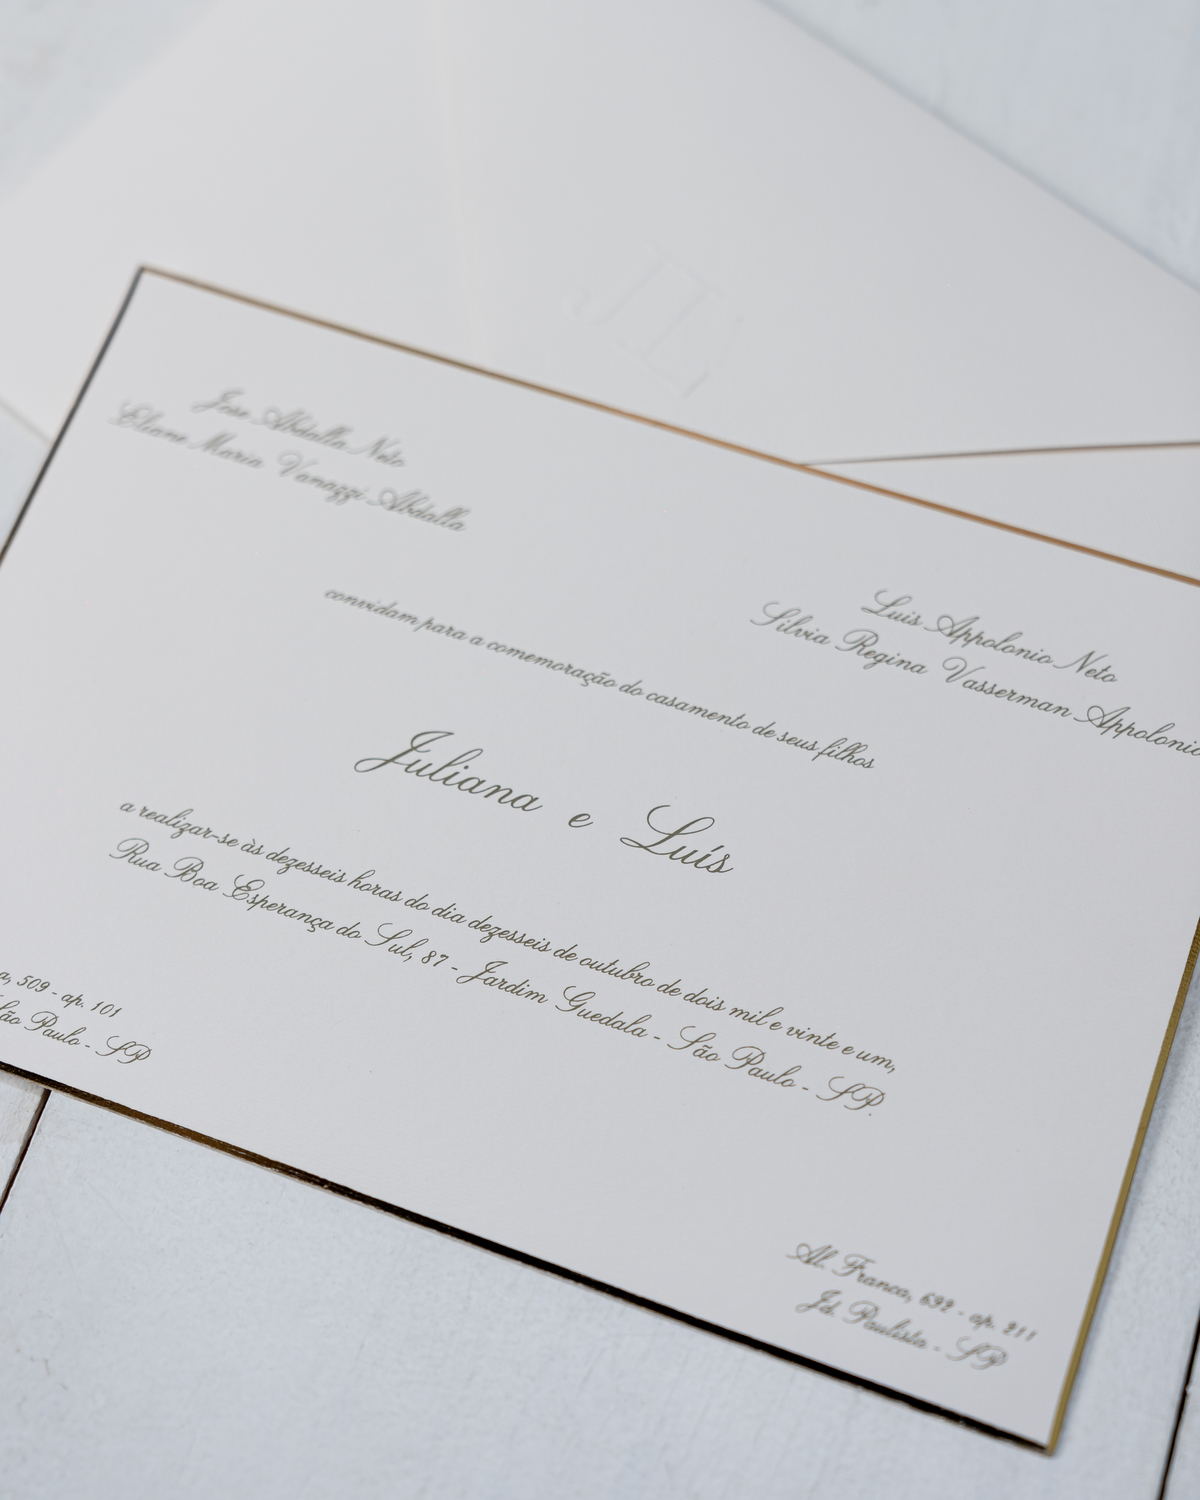 JL
Jose Abdalla Neto
Eliane Maria Vanazzi Abdalla
Luis Appolonio Neto
Silvia Regina Vasserman Appolonio
convidam para a comemoração do casamento de seus filhos
Juliana e Luís
a realizar-se às dezesseis horas do dia dezesseis de outubro de dois mil e vinte e um,
Rua Boa Esperança do Sul, 87 - Jardim Guedala - São Paulo - SP.
509 - ap. 101
São Paulo - SP
Al. Franca, 692 - ap. 211
Jd. Paulista - SP